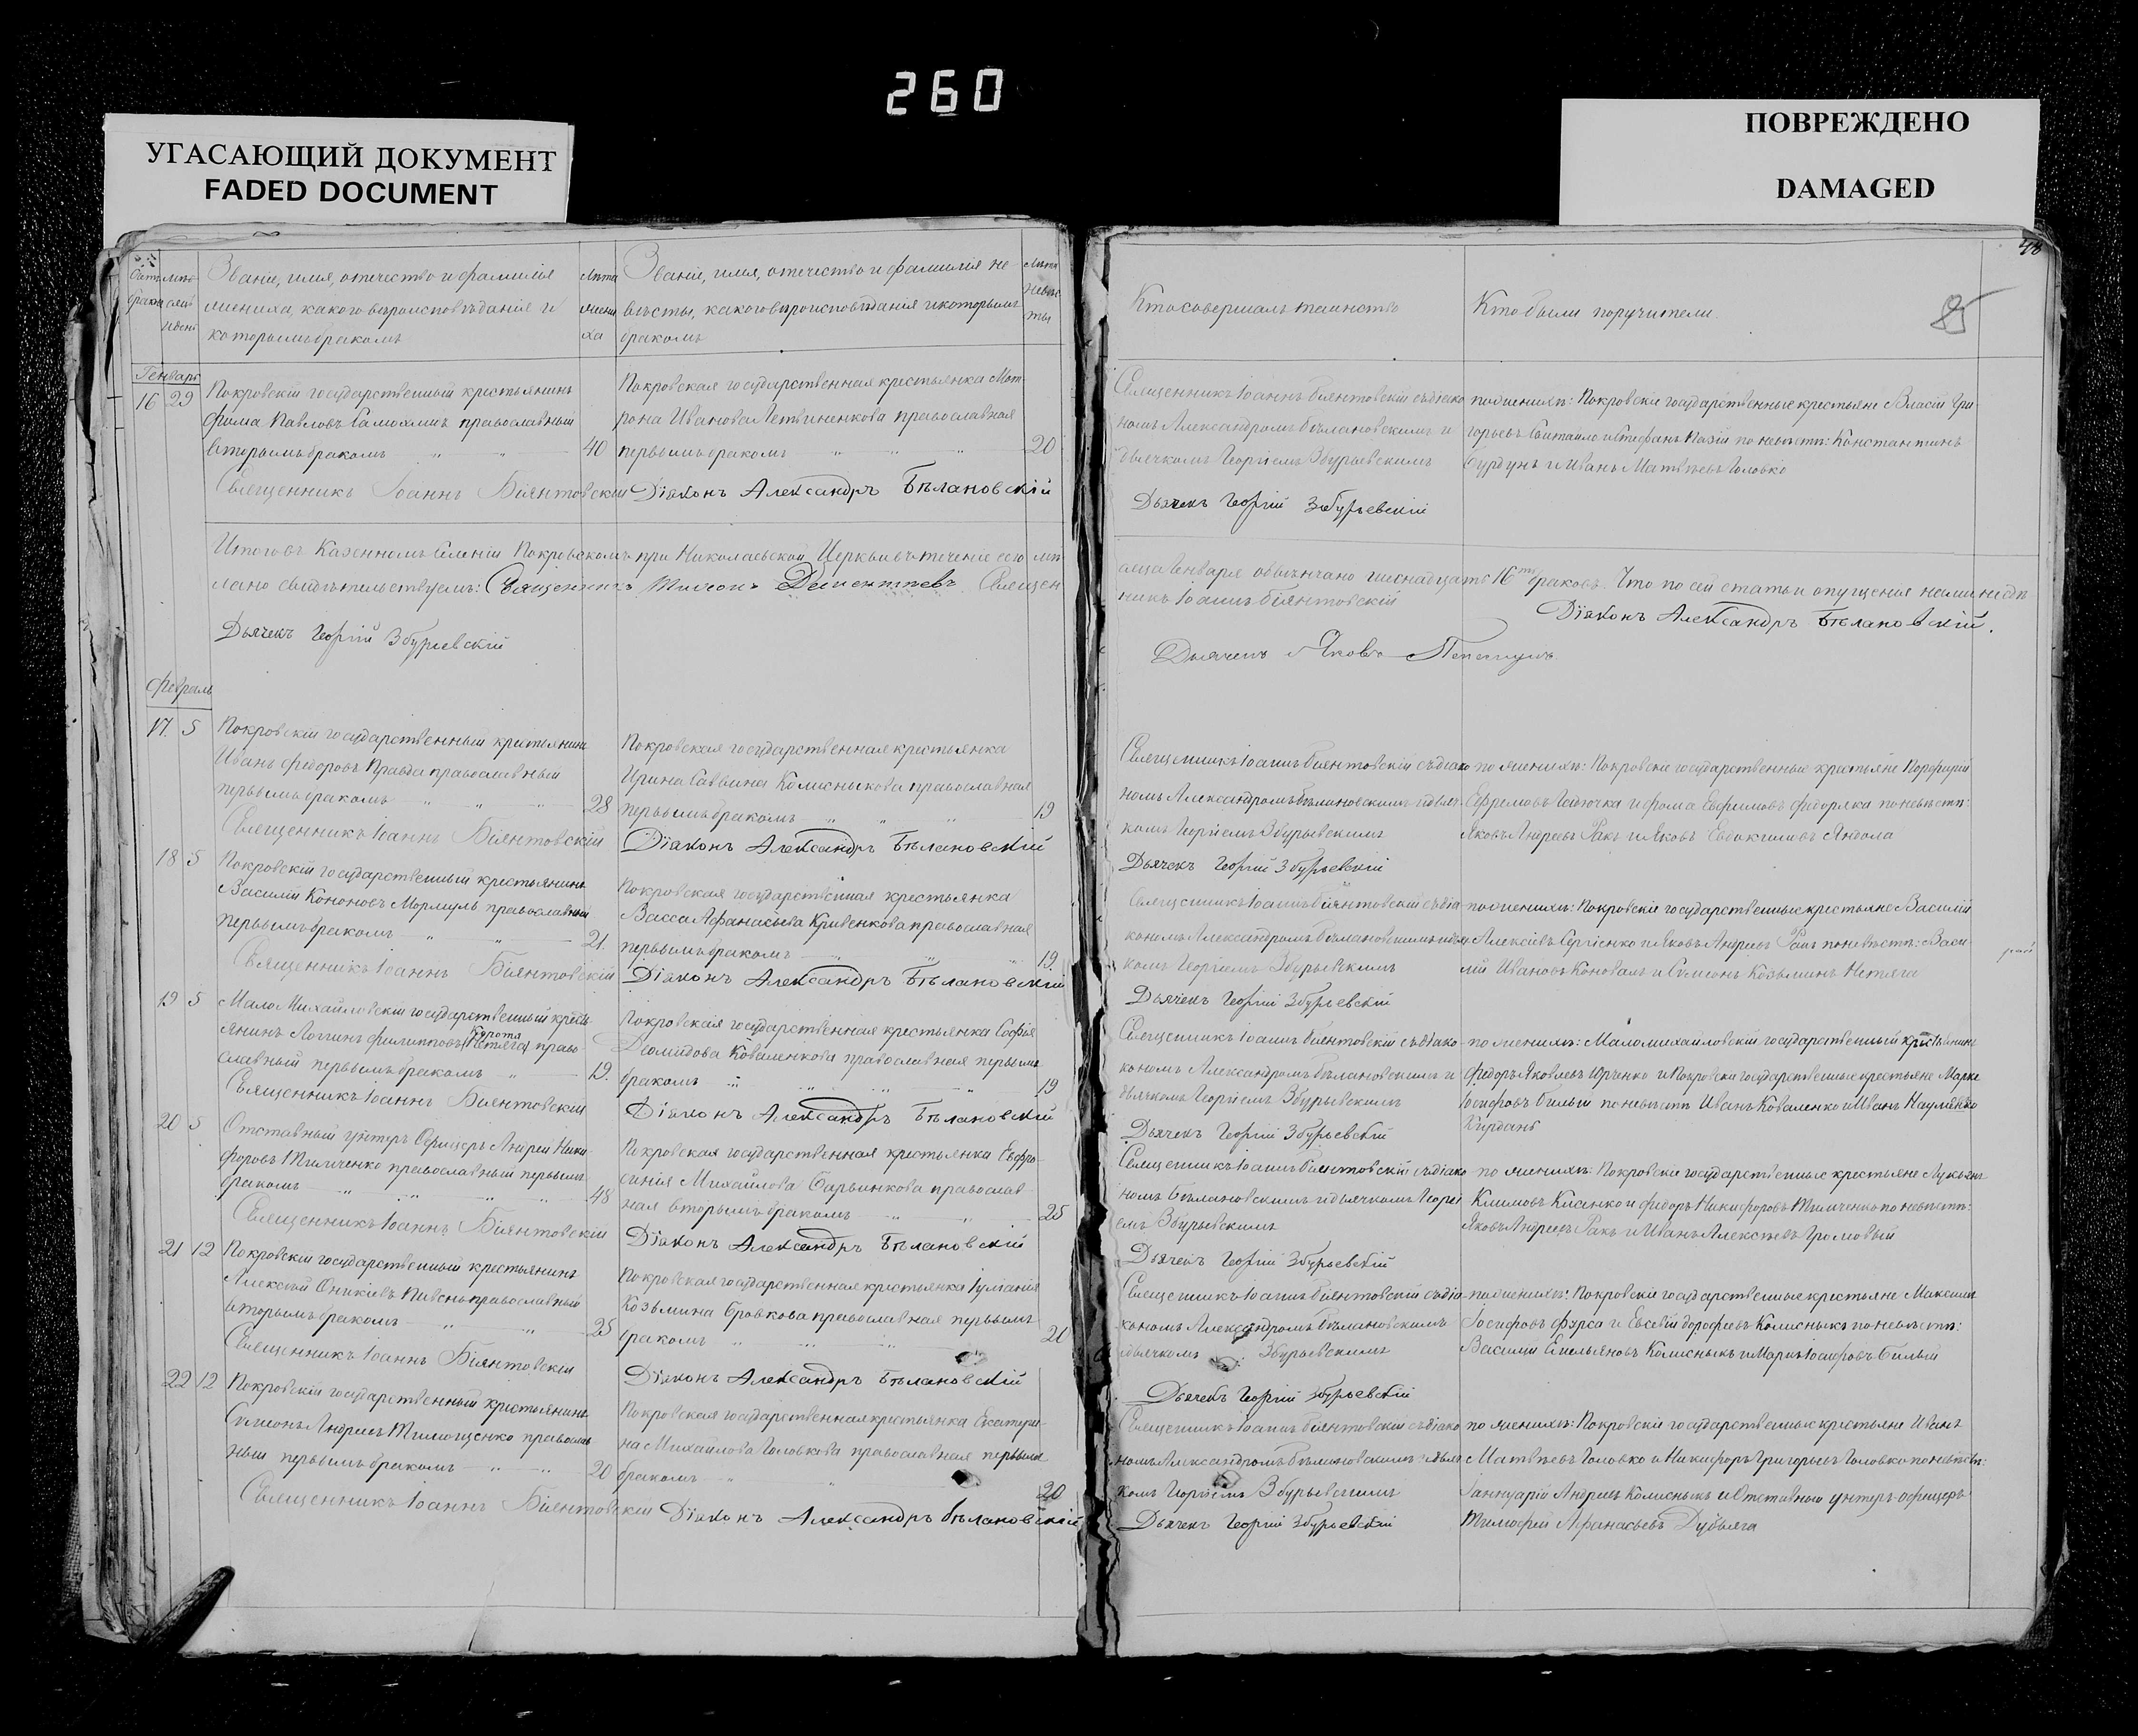 260
УГАСАЮЩИЙ ДОКУМЕНТ
FADED DOCUMENT
ПОВРЕЖДЕНО
DAMAGED
Званіе, имя, отечество и фамилія
жениха, какого вѣроисповѣданія и
которымъ бракомъ
Лѣта
жени
ха
Званіе, имя, отечество и фамилія не
вѣсты, какого вѣроисповѣданія и которымъ
бракомъ
Лѣта
невѣс
ты
Кто совершалъ таинство
Кто были поручители
85
Генварь
16 29
Покровскій государственный крестьянинъ
Фома Павловъ православный
вторымъ бракомъ 40
Священникъ Іоаннъ Біянтовскій
Покровская государственная крестьянка Мат
рона Иванова Летвиненкова православная
первымъ бракомъ 20
Діяконъ Александръ Бѣлановскій
Священникъ Іоаннъ Біянтовскій съ діяко
номъ Александромъ Бѣлановскимъ и
дьячкомъ Георгіемъ Збурьевскимъ
Дьячекъ Георгій Збурьевскій
по женихѣ: Покровскіе государственные крестьяне Власій Гри
горьевъ и Стефанъ по невѣстѣ: Константинъ
Бурдунъ и Иванъ Матвѣевъ Головко
Итого въ Казенномъ Селеніи Покровскомъ при Николаевской Церкви въ теченіе сего мѣ
сяца Генваря обвѣнчано шеснадцать 16ть браковъ. Что по сей статьи опущенія не
лано свидѣтельствуемъ: Священникъ Дементьевъ Священ
никъ Іоаннъ Біянтовскій
Діяконъ Александръ Бѣлановскій.
Дьячекъ Георгій Збурьевскій
Дьячекъ Яковъ
Февраль
17. 5
Покровскій государственный крестьянинъ
Иванъ Федоровъ Правда православный
первымъ бракомъ 28
Священникъ Іоаннъ Біянтовскій
Покровская государственная крестьянка
Ирина Саввина Колисныкова православная
первымъ бракомъ 19
Діяконъ Александръ Бѣлановскій
Священникъ Іоаннъ Біянтовскій съ діяко
номъ Александромъ Бѣлановскимъ и дьяч
комъ Георгіемъ Збурьевскимъ
Дьячекъ Георгій Збурьевскій
по женихѣ: Покровскіе государственные крестьяне Порфирій
Ефремовъ и Фома Евфимовъ Федоряка по невѣстѣ:
Яковъ Андреевъ Ракъ и Яковъ Евдокимовъ
18 5
Покровскій государственный крестьянинъ
Василій Кононовъ Мормуль православный
первымъ бракомъ 21.
Священникъ Іоаннъ Біянтовскій
Покровская государственная крестьянка
Васса Афанасьева Кривенкова православная
первымъ бракомъ 19.
Діяконъ Александръ Бѣлановскій
Священникъ Іоаннъ Біянтовскій съ дія
кономъ Александромъ Бѣлановскимъ и дьяч
комъ Георгіемъ Збурьевскимъ
Дьячекъ Георгій Збурьевскій
по женихѣ: Покровскіе государственные крестьяне Василій
Алексіевъ Сергіенко и Яковъ Андреевъ Ракъ по невѣстѣ: Васи
лій Ивановъ Коновалъ и Сѵмеонъ Козьминъ Нетяга
19 5
Мало Михайловскій государственный кресть
янинъ Логгинъ Филипповъ (Нетяга) право
славный первымъ бракомъ 19.
Священникъ Іоаннъ Біянтовскій
Покровская государственная крестьянка Софія
Діомидова Коваленкова православная первымъ
бракомъ 19
Діяконъ Александръ Бѣлановскій
Священникъ Іоаннъ Біянтовскій съ діяко
кономъ Александромъ Бѣлановскимъ и
дьячкомъ Георгіемъ Збурьевскимъ
Дьячекъ Георгій Збурьевскій
по женихѣ: Маломихайловскій государственный крестьянинъ
Федоръ Яковлевъ Юрченко и Покровскіе государственные крестьяне Марко
Іосифовъ Билый по невѣстѣ Иванъ Коваленко и Иванъ Науменко
20 5
Отставный унтеръ Офицеръ Андрей Ники
форовъ Тимченко православный первымъ
бракомъ 48
Священникъ Іоаннъ Біянтовскій
Покровская государственная крестьянка Евфро
синія Михайлова Барвинкова православ
ная вторымъ бракомъ 25
Діяконъ Александръ Бѣлановскій
Священникъ Іоаннъ Біянтовскій съ діяко
номъ Бѣлановскимъ и дьячкомъ Георгі
емъ Збурьевскимъ
Дьячекъ Георгій Збурьевскій
по женихѣ: Покровскіе государственные крестьяне Лукьянъ
Климовъ Кисенко и Федоръ Никифоровъ Тимченко по невѣстѣ:
Яковъ Андреевъ Ракъ и Иванъ Алексѣевъ Громовый
21 12
Покровскій государственный крестьянинъ
Алексѣй Оникіевъ Пивень православный
вторымъ бракомъ 25
Священникъ Іоаннъ Біянтовскій
Покровская государственная крестьянка Іуліанія
Козьмина Бровкова православная первымъ
бракомъ 20
Діяконъ Александръ Бѣлановскій
Священникъ Іоаннъ Біянтовскій съ дія
кономъ Александромъ Бѣлановскимъ
дьячкомъ Збурьевскимъ
Дьячекъ Георгій Збурьевскій
по женихѣ: Покровскіе государственные крестьяне Максимъ
Іосифовъ Фурса и Евсевій Дорофеевъ Колисныкъ по невѣстѣ:
Василій Емельяновъ Колисныкъ и Марко Іосифовъ Билый
22 12
Покровскій государственный крестьянинъ
Сѵмеонъ Андреевъ Тимощенко православ
ный первымъ бракомъ 20
Священникъ Іоаннъ Біянтовскій
Покровская государственная крестьянка Екатери
на Михайлова Головкова православная первымъ
бракомъ 20
Діяконъ Александръ Бѣлановскій
Священникъ Іоаннъ Біянтовскій съ діяко
номъ Александромъ Бѣлановскимъ и дьяч
комъ Георгіемъ Збурьевскимъ
Дьячекъ Георгій Збурьевскій
по женихѣ: Покровскіе государственные крестьяне Иванъ
Матвѣевъ Головко и Никифоръ Григорьевъ Головко по невѣстѣ:
Іаннуарій Андреевъ Колисныкъ и Отставный унтеръ-офицеръ
Тимофей Афанасьевъ Дубяга